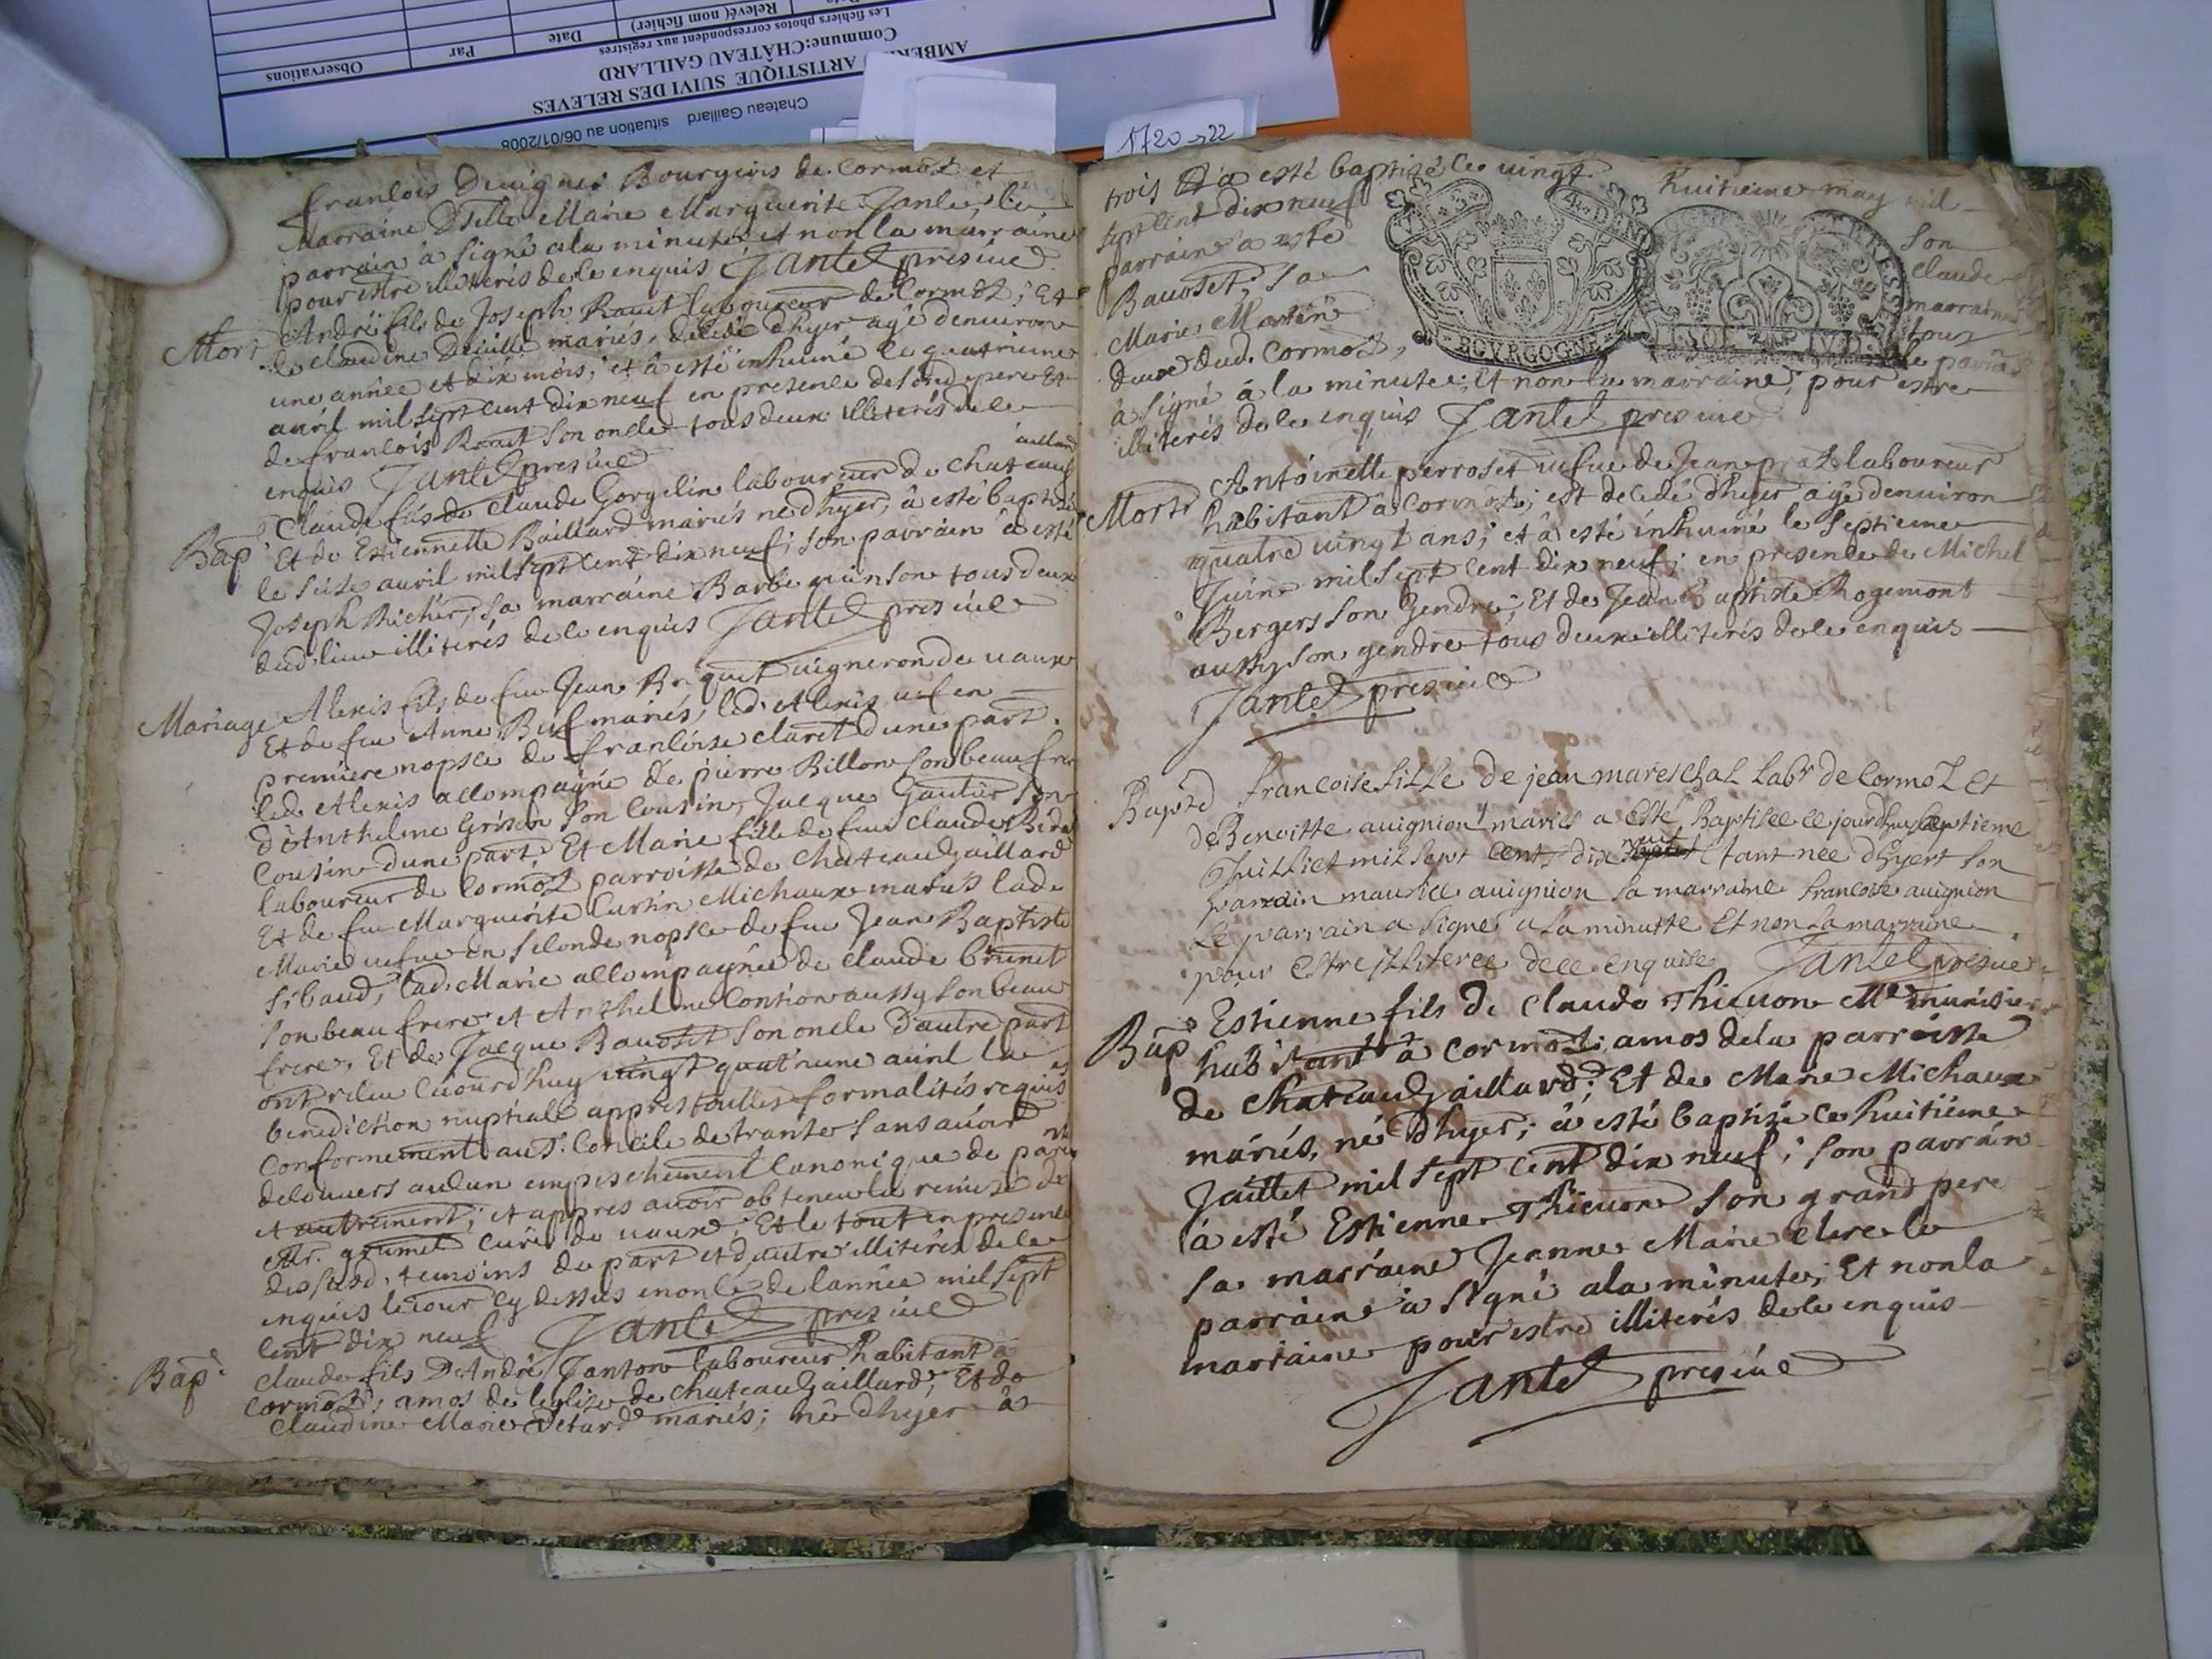 Observations
Par
Date
Relevé( nom fichier)
Les fichiers photos correspondent aux registres
Commune:CHÂTEAU GAILLARD
ARTISTIQUE SUIVI DES RELEVES
Chateau Gaillard situation au 06/01/2008
1720->22
francois Bourgeois de Cormoz et
Marraine Dlle Marie Marguerite le
parrain à signé a la minute et non la marraine
pour estre illiterés de ce enquis Jantet presvic
Mort André fils de Joseph laboureur de Cormoz, Et
de claudine mariés, decedé d'hyer agé denviron
une année et dix mois; et à esté inhumé le quatrieme
avril mil sept cent dix neuf en presence de sond. pere Et
de francois son oncle tous deux illiterés de ce
enquis Jantet presvic
Bap.e Claude fils de Claude Gorgelin laboureur de chateaugaillard
Et de Estiennette Baillard mariés né d'hyer, à esté baptisé
le seize avril mil sept cent dix neuf; son parrain à esté
Joseph Richer, sa marraine Barbe tous deux
dud. lieu illiterés de ce enquis Jantet presvic
Mariage Alexis fils de feu Jean vigneron de vaux
Et de feu Anne mariés, led. Alexis vef en
premiere nopsce de francoise claret d'une part.
led. Alexis accompagné de pierre Billon son beau frere
d'Anthelme son cousin, Jacque Gautier son
cousin d'une part, Et Marie fille de feu claude
laboureur de Cormoz parroisse de chateaugaillard
Et de feu Marguerite Curtin Michaux mariés lad.
Marie vefve en seconde nopsce de feu Jean Baptiste
Sibaud, lad. Marie accompagnée de claude brunet
son beau frere et Anthelme aussy son beau
frere, Et de Jacque Bavoset son oncle d'autre part
ont receu cejourd'huy vingt quatrieme avril la
benediction nuptiale appres toutes formalités requises
conformement au St. Concile de trante sans avoir
decouvers aucun empeschement canonique de part
et autrement; et appres avoir obteneu la remise de
Mr. grumet curé de vaux; Et le tout en presence
des susd. temoins de part et d'autre illiterés de ce
enquis le iour cy dessus enoncé de l'année mil sept
cent dix neuf Jantet presvic
Bap.e claude fils D'André Janton laboureur habitant à
Cormoz; amos de l'eglise de chateaugaillard; Et de
Claudine Marie mariés; né d'hyer à
trois Et à esté baptisé ce vingt huitieme may mil
sept cent dix neuf son
parrain a esté claude
Bavoset; sa marraine
Marie tous
deux dud. Cormoz, le parrain
BOVRGOGNE
à signé à la minute; Et non la marraine; pour estre
illiterés de ce enquis Jantet presvic
Mort Antoinette perroset vefve de Jean prat laboureur
habitant à Cormoz; est decedé d'hyer agé denviron
quatre vingt ans; et à esté inhumé le septieme
Juin mil sept cent dix neuf; en presence de Michel
Berger son gendre; Et de Jean Baptiste Rogemont
aussy son gendre tous deux illiterés de ce enquis
Jantet presvic
Bap.e francoise fille de jean mareschal labr de Cormoz Et
de Benoitte avignion mariés a esté Baptisee ce jourdhuy septieme
Juilliet mil sept cents dix neuf Etant née d'hyert son
parrain maurice avignion sa marraine francoise avignion
Le parrain a signé a la minutte Et non la marraine
pour estre illiteree de ce enquise Jantet presvic
Bap.e Estienne fils de claude Thievon Me
habitant à Cormoz; amos de la parroisse
de chateaugaillard; Et de Marie Michaux
mariés, né d'hyer; à esté baptisé ce huitieme
Juillet mil sept cent dix neuf; son parrain
à esté Estienne Thievon son grand pere
sa marraine Jeanne Marie clerc le
parrain à signé a la minute; Et non la
marraine pour estre illiterés de ce enquis
Jantet presvic